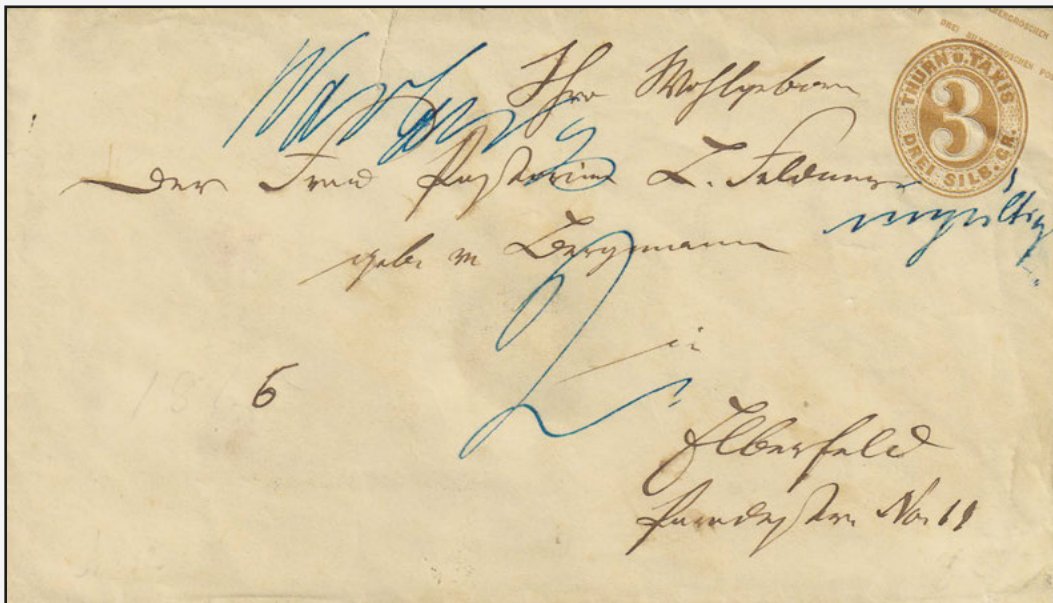 DREI SILBERGROSCHEN
THURN U. TAXIS
3
DREI SILB. GR.
Ihro Wohlgeborn
Der Frau Pastorin L. Feldner
ungültig
Bergmann
2
in
6
Elberfeld
No. 11